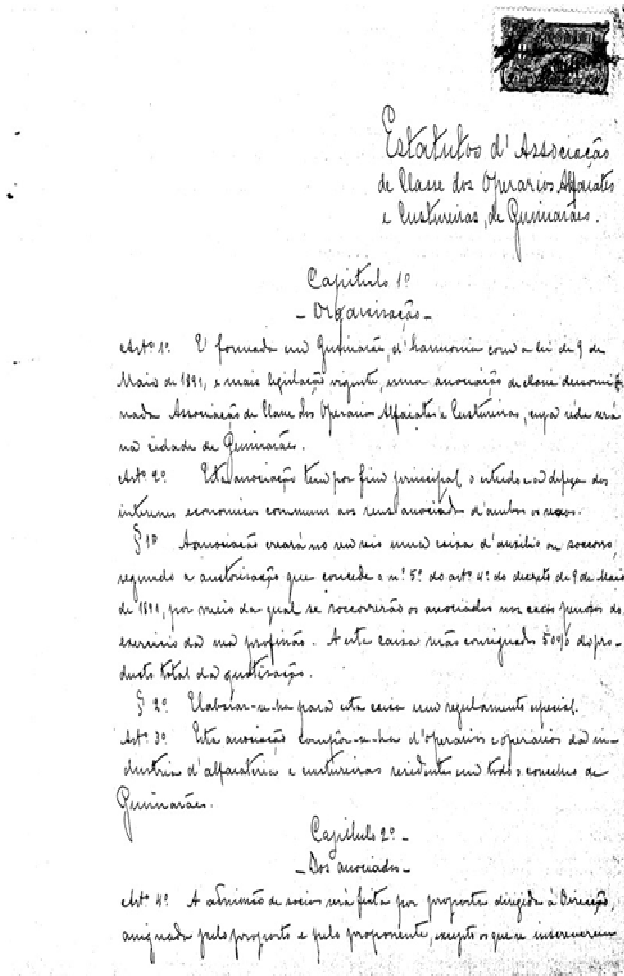 Estatutos d'Associação
de Classe dos Operarios Alfaiates
e Custureiras, de Guimarães.
Capitulo 1º
- Organisação -
Artº 1º. É formada em Guimarães, d'harmonia com a lei de 9 de
Maio de 1891, e mais legislação vigente, uma associação de classe denomi-
nada Associação de Classe dos Operarios Alfaiates e Custureiras, cuja séde será
na cidade de Guimarães.
Artº 2º. Esta associação tem por fim principal o estudo e a defeza dos
interesses economicos communs aos seus associados d'ambos os sexos.
§ 1º A associação creará no seu seio uma caixa d'auxilio ou soccorro,
segundo a auctorisação que concede o n.º 5º do artº 4º do decreto de 9 de Maio
de 1891, por meio da qual se soccorrerão os associados nos casos do
exercicio da sua profissão. A esta caixa serão consignados 50% do pro-
ducto total da quotisação.
§ 2º Elaborar-se-ha para esta caixa um regulamento especial.
Artº 3º. Esta associação compôr-se-ha d'operarios e operarias da in-
dustria d'alfaiateria e custureiras residentes em todo o concelho de
Guimarães.
Capitulo 2º -
- Dos associados -
Artº 4º A admissão de socios será feita por proposta dirigida à Direcção,
assignada pelo proposto e pelo proponente, excepto os que se inscreverem